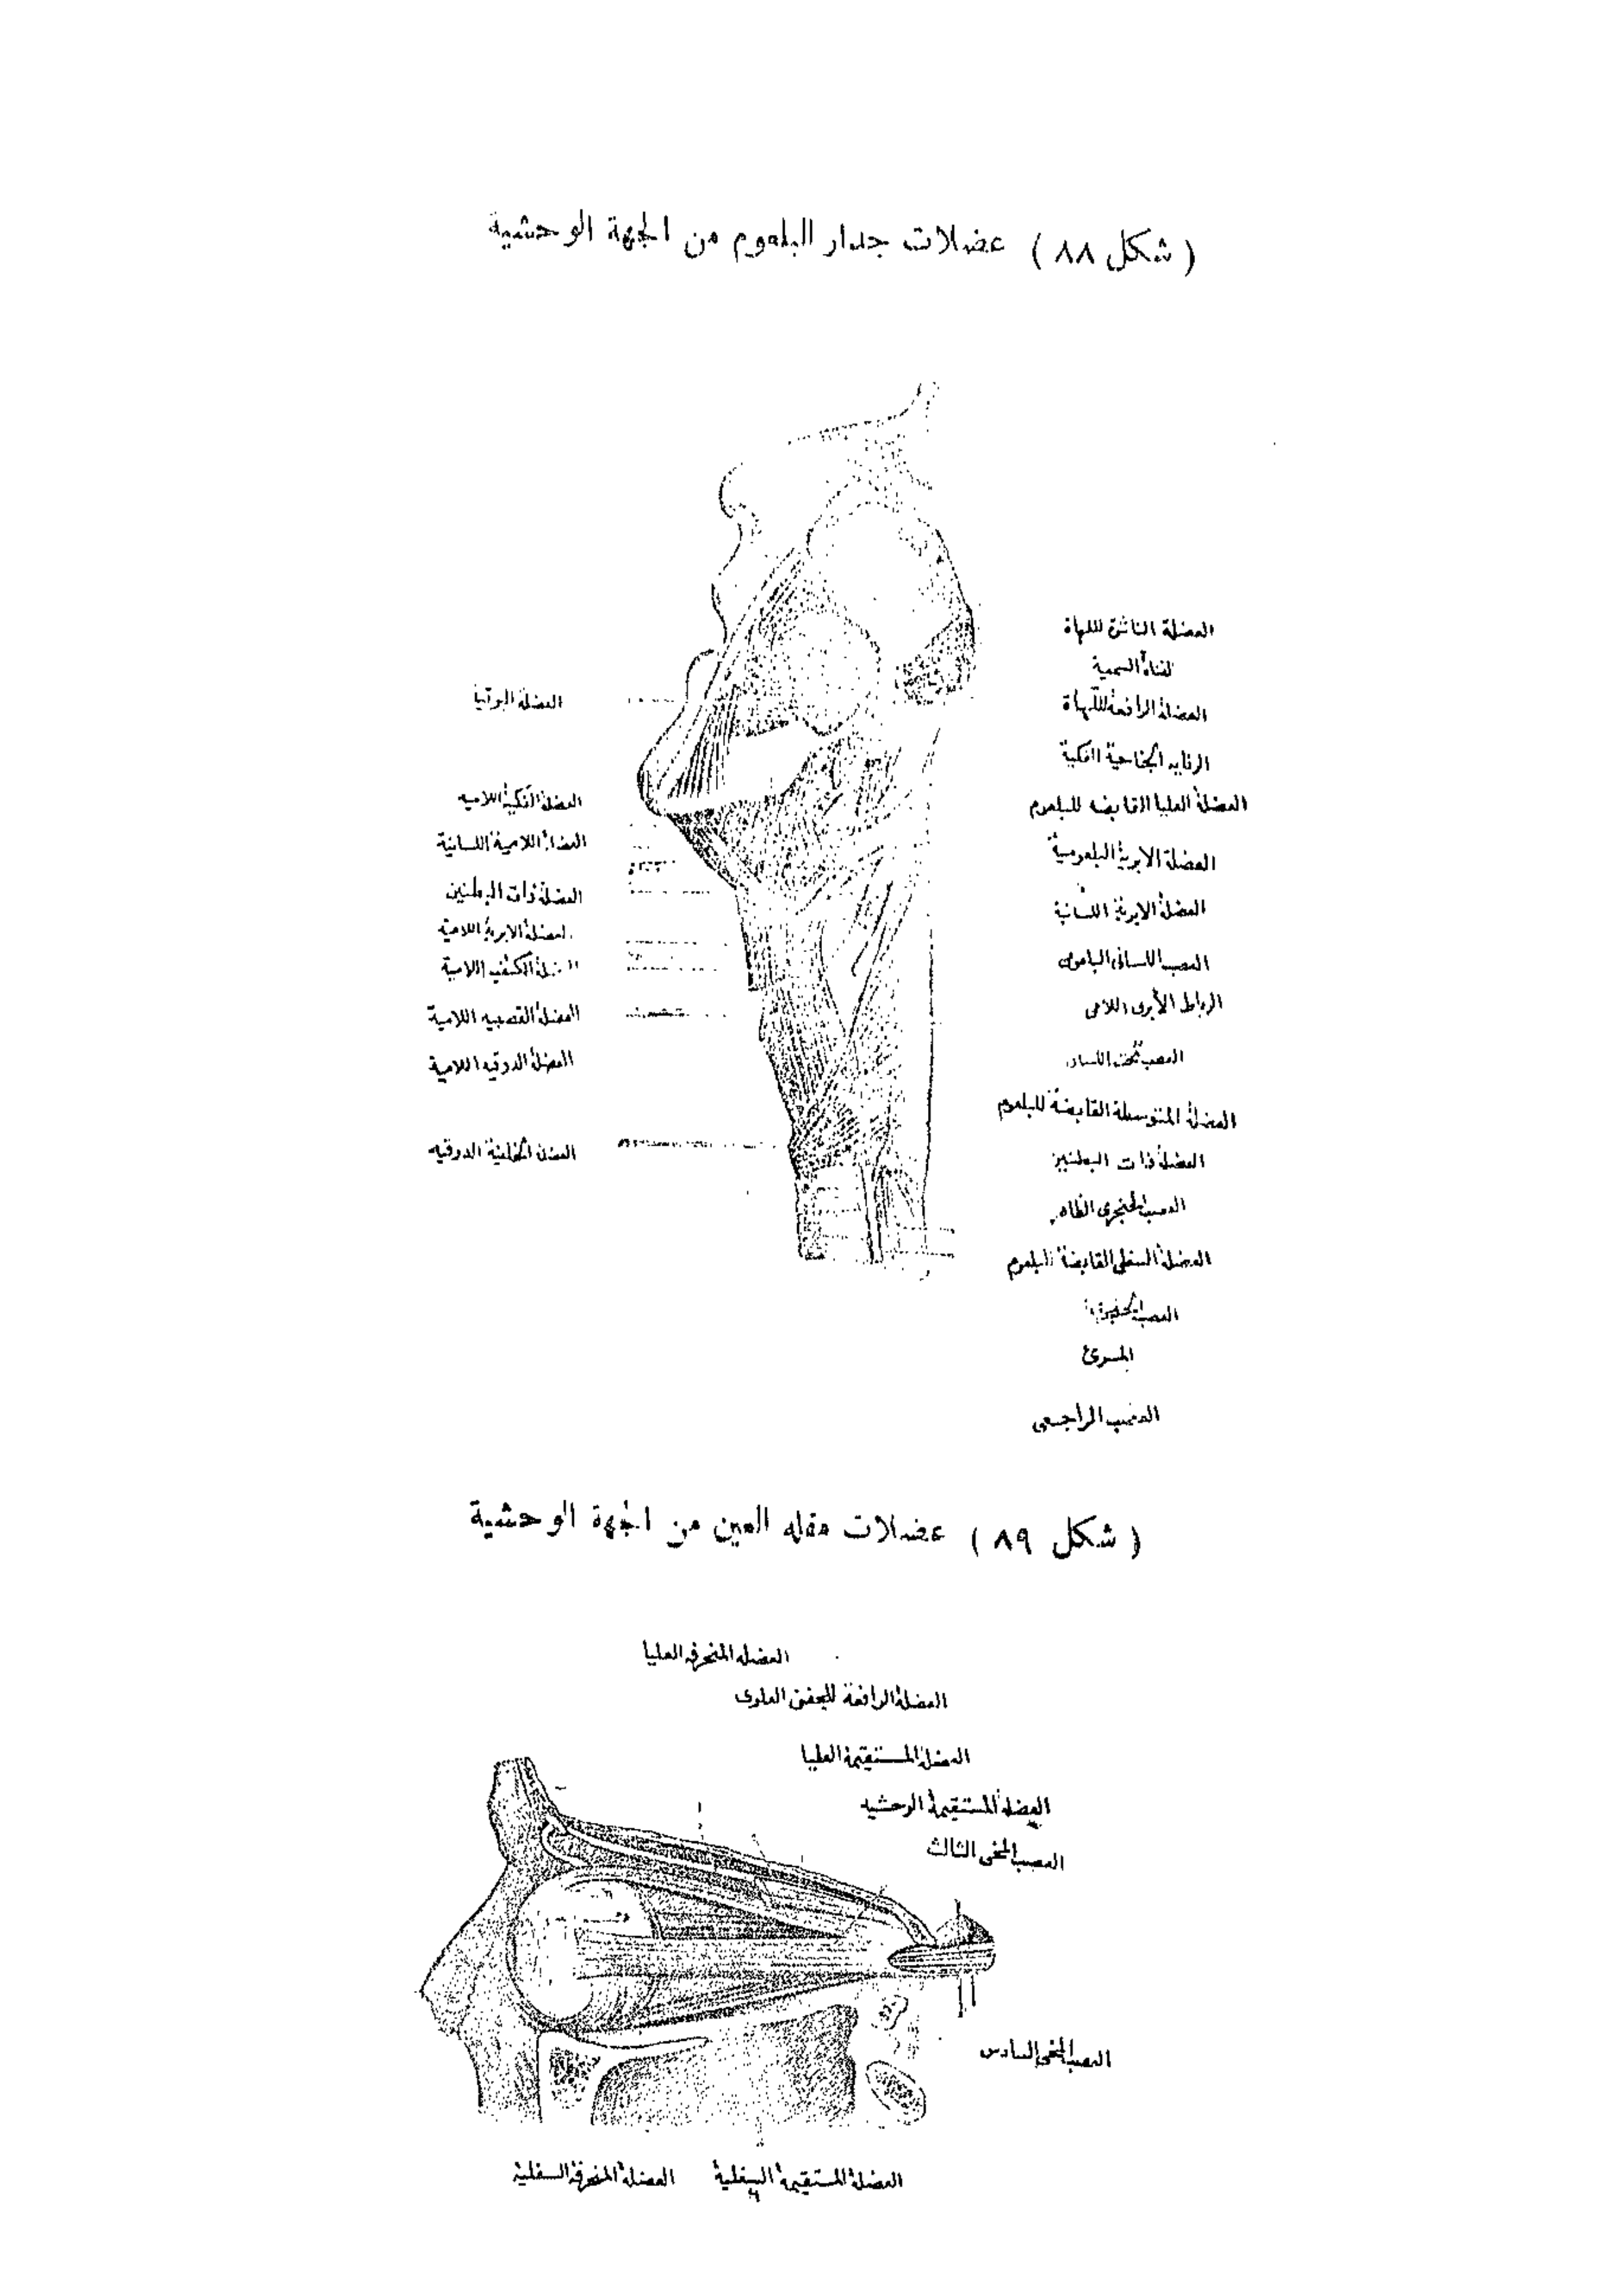 ( شكل ٨٨ ) عضلات جدار البلعوم من الجهة الوحشية
العضلة الناشرة للهاة
القناة السمعية
العضلة الرافعة للهاة
الجناحية الفكية
العضلة العليا القابضه للبلعوم
العضلة الابرية البلعومية
العضلة الابرية اللسانية
العصب اللسانى البلعومى
الرباط الأبرى اللامى
العصب تحت اللسان
العضلة المتوسطة القابضة للبلعوم
العضلة ذات البطنين
العصب الحنجرى الظاهر
العضلة السفلى القابضة للبلعوم
العصب
المرئ
العصب الراجعى
العضلة
العضلة الفكية اللاميه
العضلة اللامية اللسانية
العضلة ذات البطنين
العضلة الابرية اللامية
العضلة الكتفية اللامية
العضلة القصيه اللامية
العضلة الدرقيه اللامية
العضلة الحلقية الدرقيه
( شكل ٨٩ ) عضلات مقله العين من الجهة الوحشية
العضله المنحرفه العليا
العضلة الرافعة للجفن العلوى
العضلة المستقيمة العليا
العضلة المستقيمة الوحشيه
العصب المخى الثالث
العصب المخى السادس
العضلة المستقيمة السفلية
العضلة المنحرفة السفلية